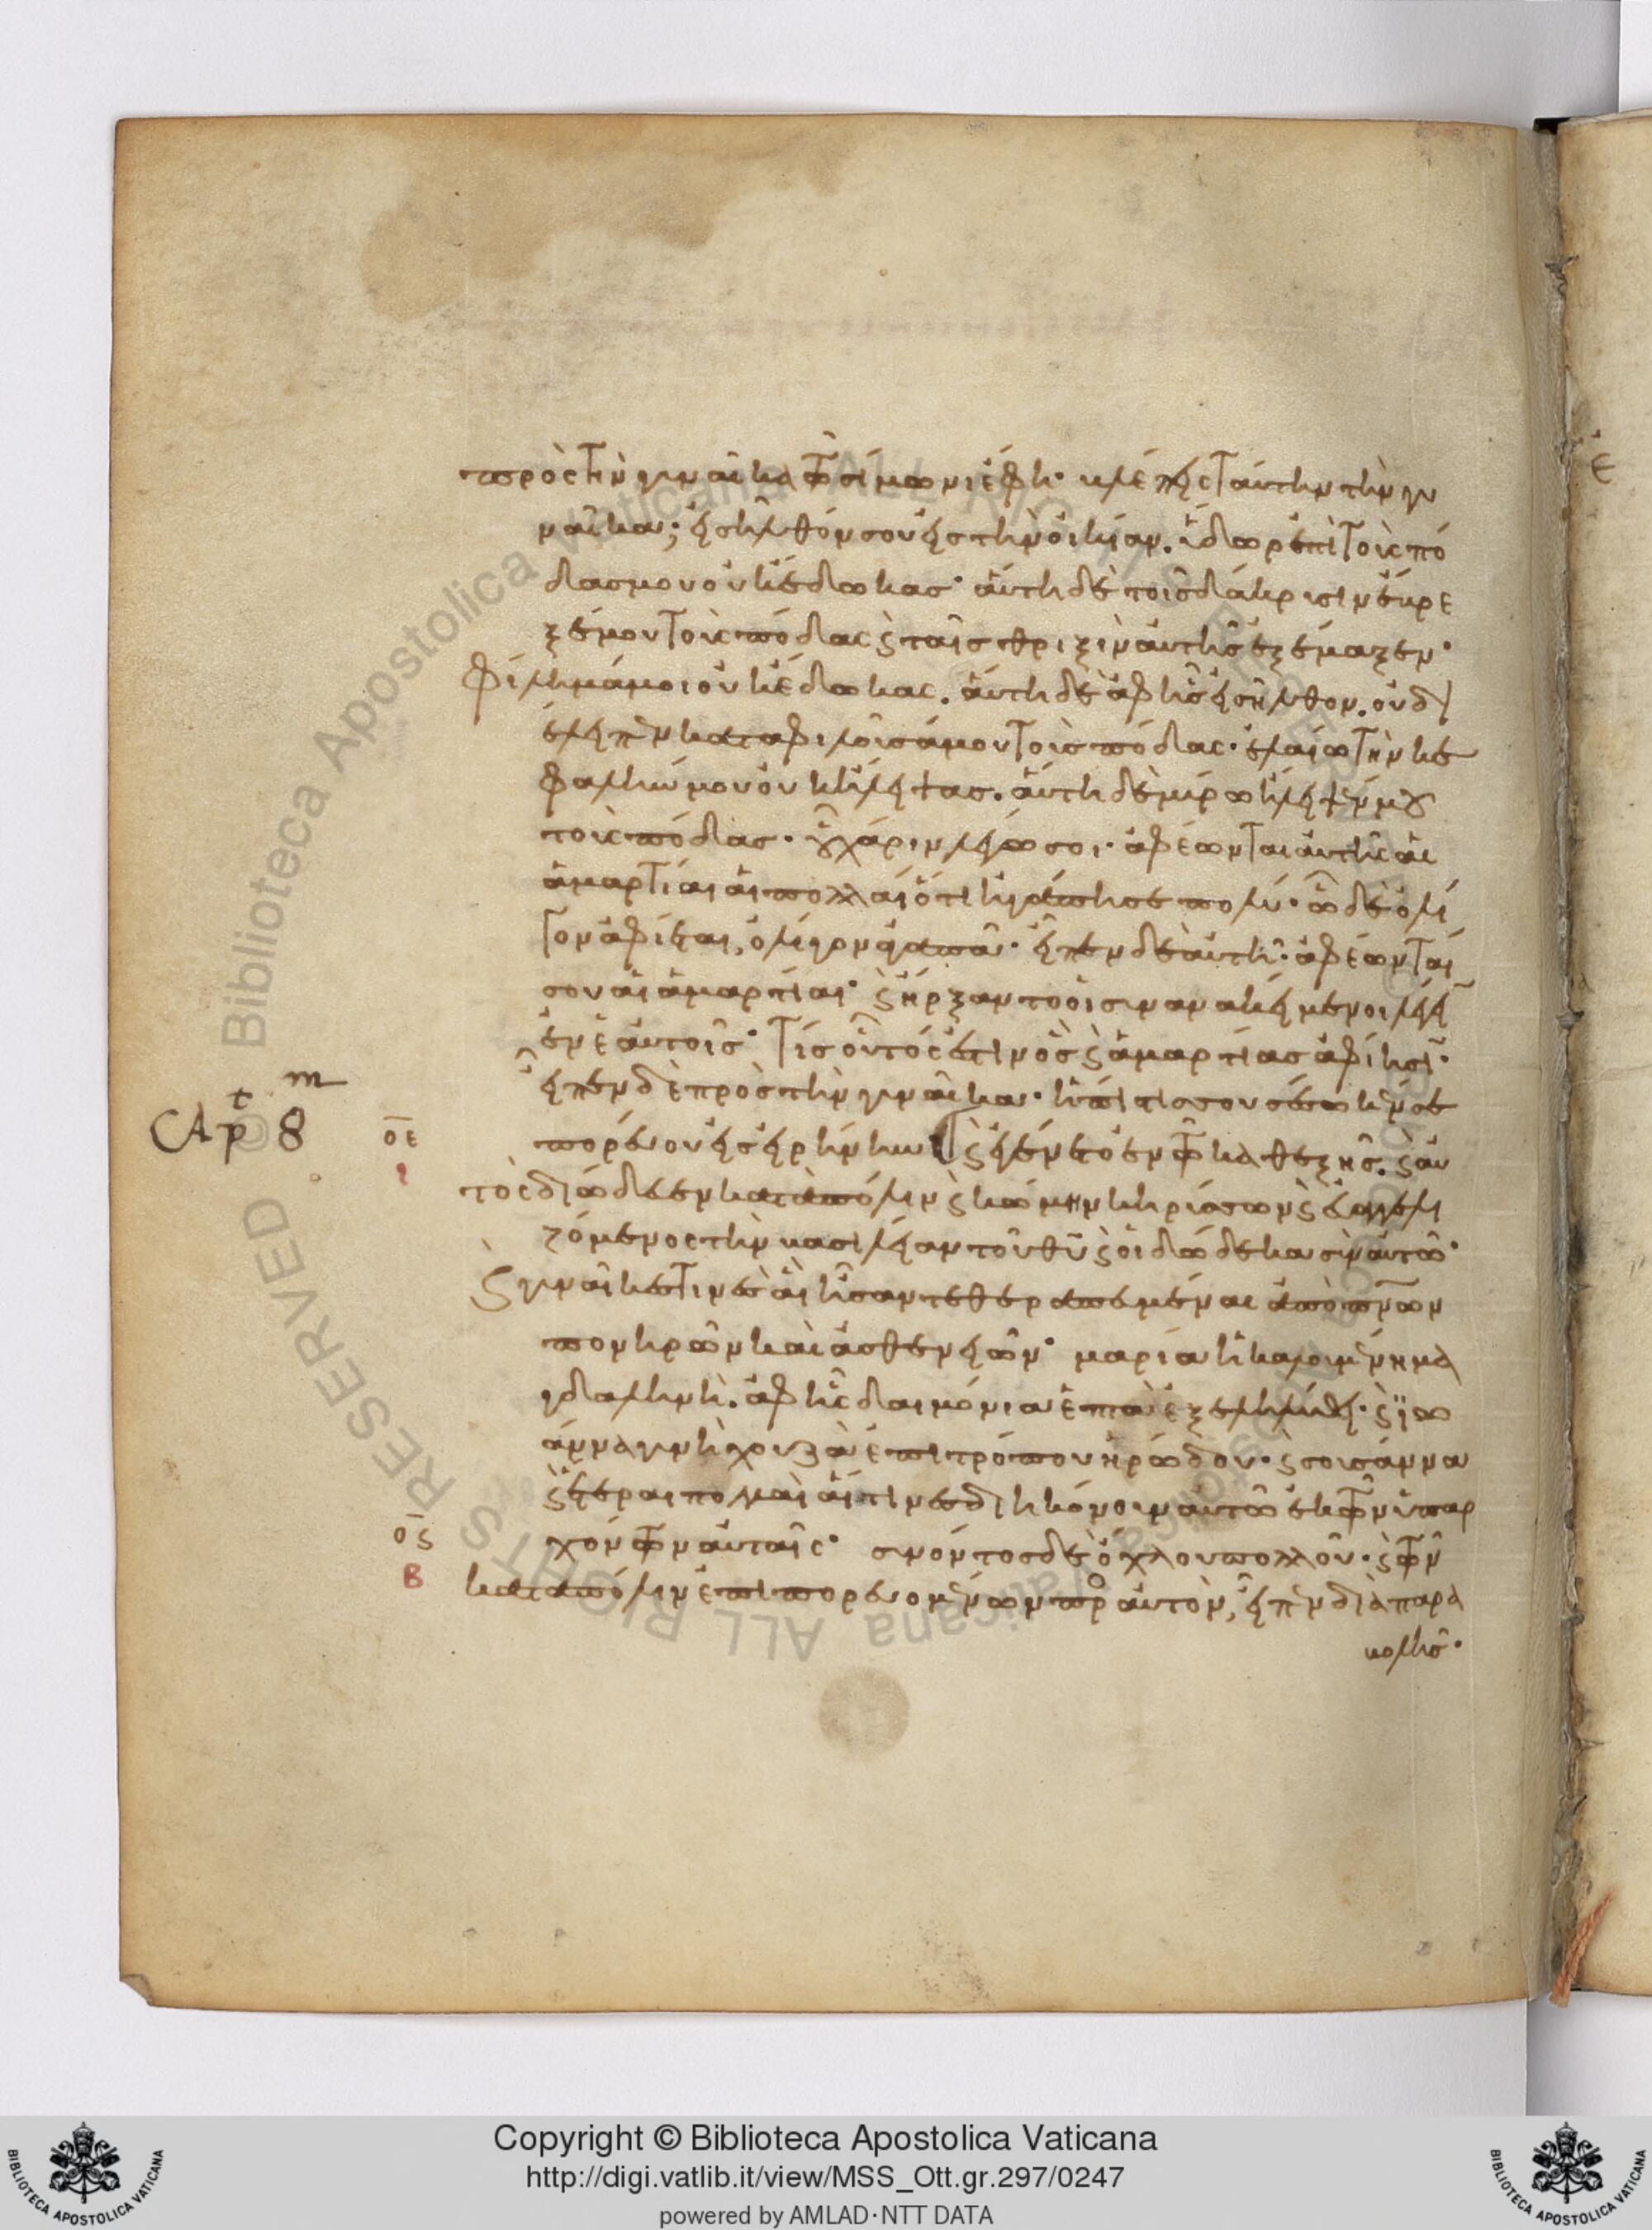 πρὸς τὴν γυναῖκα τῶ σίμωνι ἔφη· βλέπεις ταύτην τὴν γυ
ναῖκα; εἰσῆλθόν σου εἰς τὴν οἰκίαν. ὕδωρ ἐπὶ τοὺς πό
δας μου οὐκ ἔδωκας· αὕτη δὲ τοῖς δάκρυσιν ἔβρε
ξέ μου τοὺς πόδας ϗ ταῖς θριξὶν αὐτῆς ἐξέμαξεν·
φίλημά μοι οὐκ ἔδωκας. αὕτη δὲ ἀφ' ἧς εἰσῆλθον. οὐ δι
έλειπεν καταφιλοῦσά μου τοὺς πόδας· ἐλαίω τὴν κε
φαλήν μου οὐκ ἤλειψας. αὕτη δὲ μύρω ἤλειψέν μου
τοὺς πόδας· οὗ χάριν λέγω σοι· ἀφέωνται αὐτῆς αἱ
ἁμαρτίαι αἱ πολλαί ὅτι ἠγάπησε πολύ· ὧ δὲ ὀλί
γον ἀφίεται, ὀλίγον ἀγαπᾶ· εἶπεν δὲ αὐτῆ· ἀφέωνταί
σου αἱ ἁμαρτίαι· ϗ ἤρξαντο οἱ συνανακείμενοι λέγειν
ἐν ἑαυτοῖς· τίς οὗτός ἐστιν ὃς ϗ ἁμαρτίας ἀφίησιν·
εἶπεν δὲ πρὸς τὴν γυναῖκα· ἡ πίστις σου σέσωκέν σε
πορεύου εἰς εἰρήνην ϗ ἐγένετο ἐν τῶ καθεξῆς. ϗ αὐ
τὸς διώδευεν κατὰ πόλιν ϗ κώμην κηρύσσων ϗ εὐαγγελι
ζόμενος τὴν βασιλείαν τοῦ θῦ ϗ οἱ δώδεκα σὺν αὐτῶ·
ϗ γυναῖκές τινες αἳ ἦσαν τεθεραπευμέναι ἀπὸ πνων
πονηρῶν καὶ ἀσθενειῶν· μαρία ἡ καλουμένη μα
γδαληνή. ἀφ' ἧς δαιμόνια ἑπτὰ ἐξεληλύθει· ϗ ϊω
άννα γυνὴ χουζᾶ ἐπιτρόπου ἡρώδου· ϗ σουσάννα
ϗ ἕτεραι πολλαὶ αἵτινες διηκόνουν αὐτῶ ἐκ τῶν ὑπαρ
χόντων αὐταῖς· συνόντος δὲ ὄχλου πολλοῦ· ϗ τῶν
κατὰ πόλιν ἐπιπορευομένων πρὸς αὐτὸν, εἶπεν διὰ παρα
βολῆς·
CApt 8m
οε
ι
ος
Β
Copyright © Biblioteca Apostolica Vaticana
http://digi.vatlib.it/view/MSS_Ott.gr.297/0247
powered by AMLAD·NTT DATA